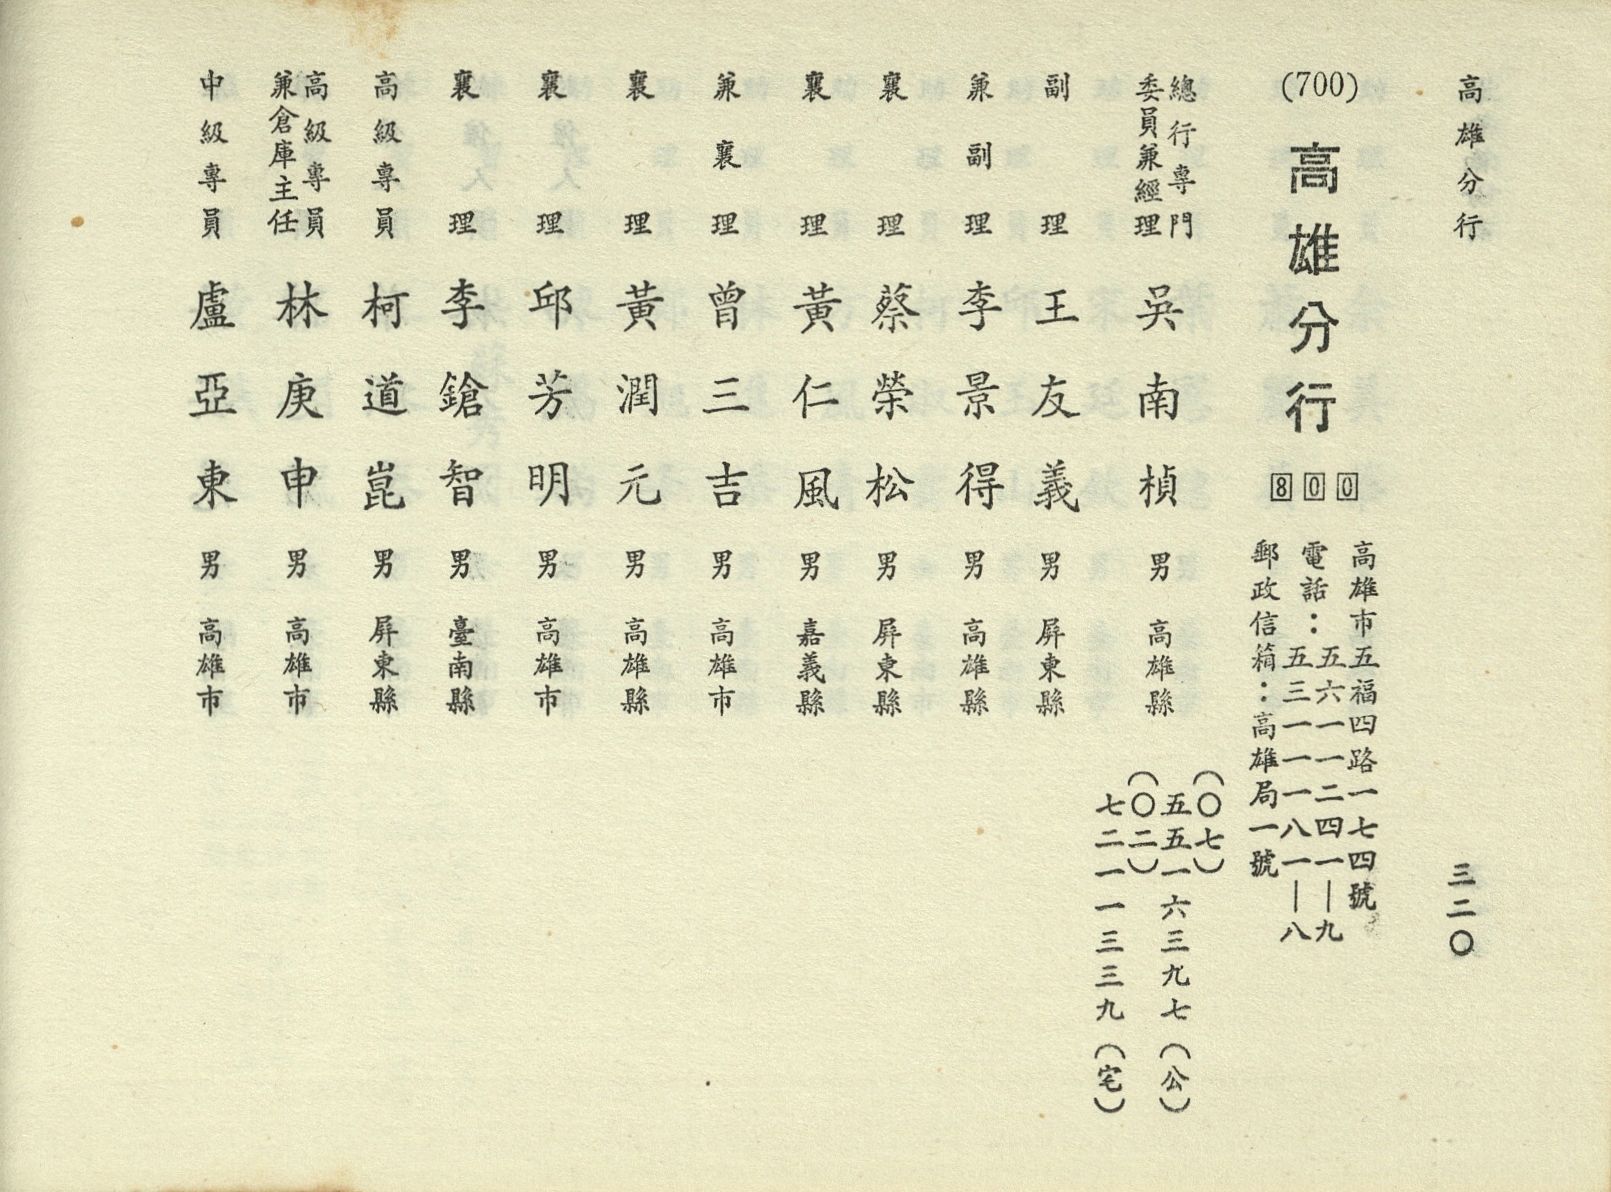 高雄分行
三二〇
(700)
高雄分行
800
高雄市五福四路一七四號
電話：五六一一二四一—九
五三一一一八一—八
郵政信箱：高雄局一號
總行專門委員兼經理 吳南楨 男 高雄縣
（〇七）五五一六三九七（公）
（〇二）七二一一三三九（宅）
副理 王友義 男 屏東縣
兼副理 李景得 男 高雄縣
襄理 蔡榮松 男 屏東縣
襄理 黃仁風 男 嘉義縣
兼襄理 曾三吉 男 高雄市
襄理 黃潤元 男 高雄縣
襄理 邱芳明 男 高雄市
襄理 李鎗智 男 臺南縣
高級專員 柯道崑 男 屏東縣
高級專員兼倉庫主任 林庚申 男 高雄市
中級專員 盧亞東 男 高雄市